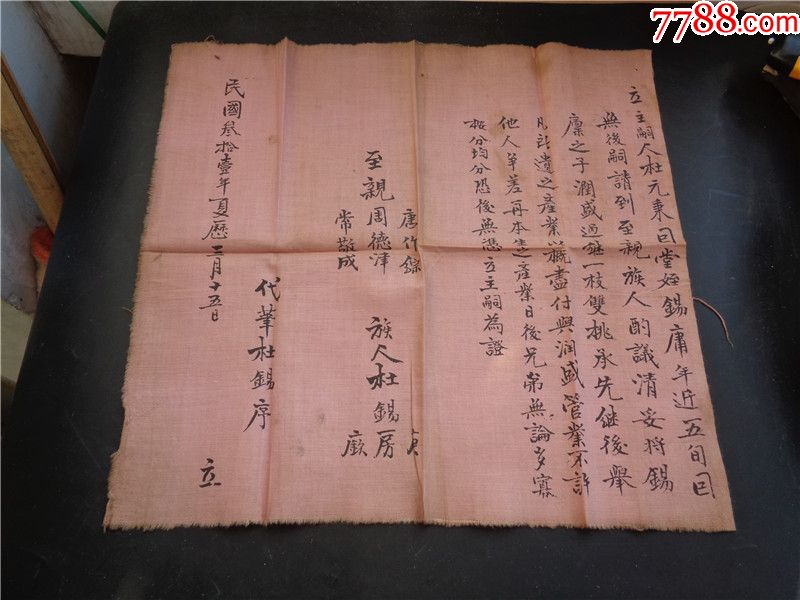 7788.com
立主嗣人杜元東因堂姪錫庸年近五旬因
無後嗣請到至親族人酌議清妥將錫
廩之子潤盛過繼一枝雙挑承先継後舉
凡所遺之產業以䊨盡付與潤盛管業不許
他人爭差再本生產業日後兄弟無論多寡
按分均分恐後無憑立主嗣為證
唐作
至親周德津
常敬成
族人杜錫房
廠
代筆杜錫序
民國叁拾壹年夏曆三月十五日
立